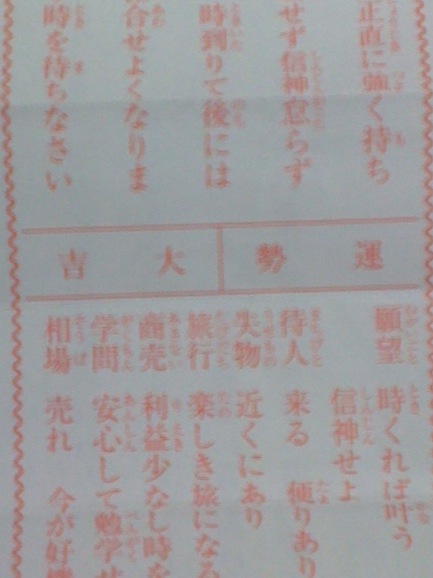 正直に強く持ち
せず信神怠らず
時到りて後には
合せよくなりま
時を待ちなさい
運勢 大吉
願望 時くれば叶う
信神せよ
待人 来る 便りあり
失物 近くにあり
旅行 楽しき旅になる
商売 利益少なし時を
学問 安心して勉学せ
相場 売れ 今が好機